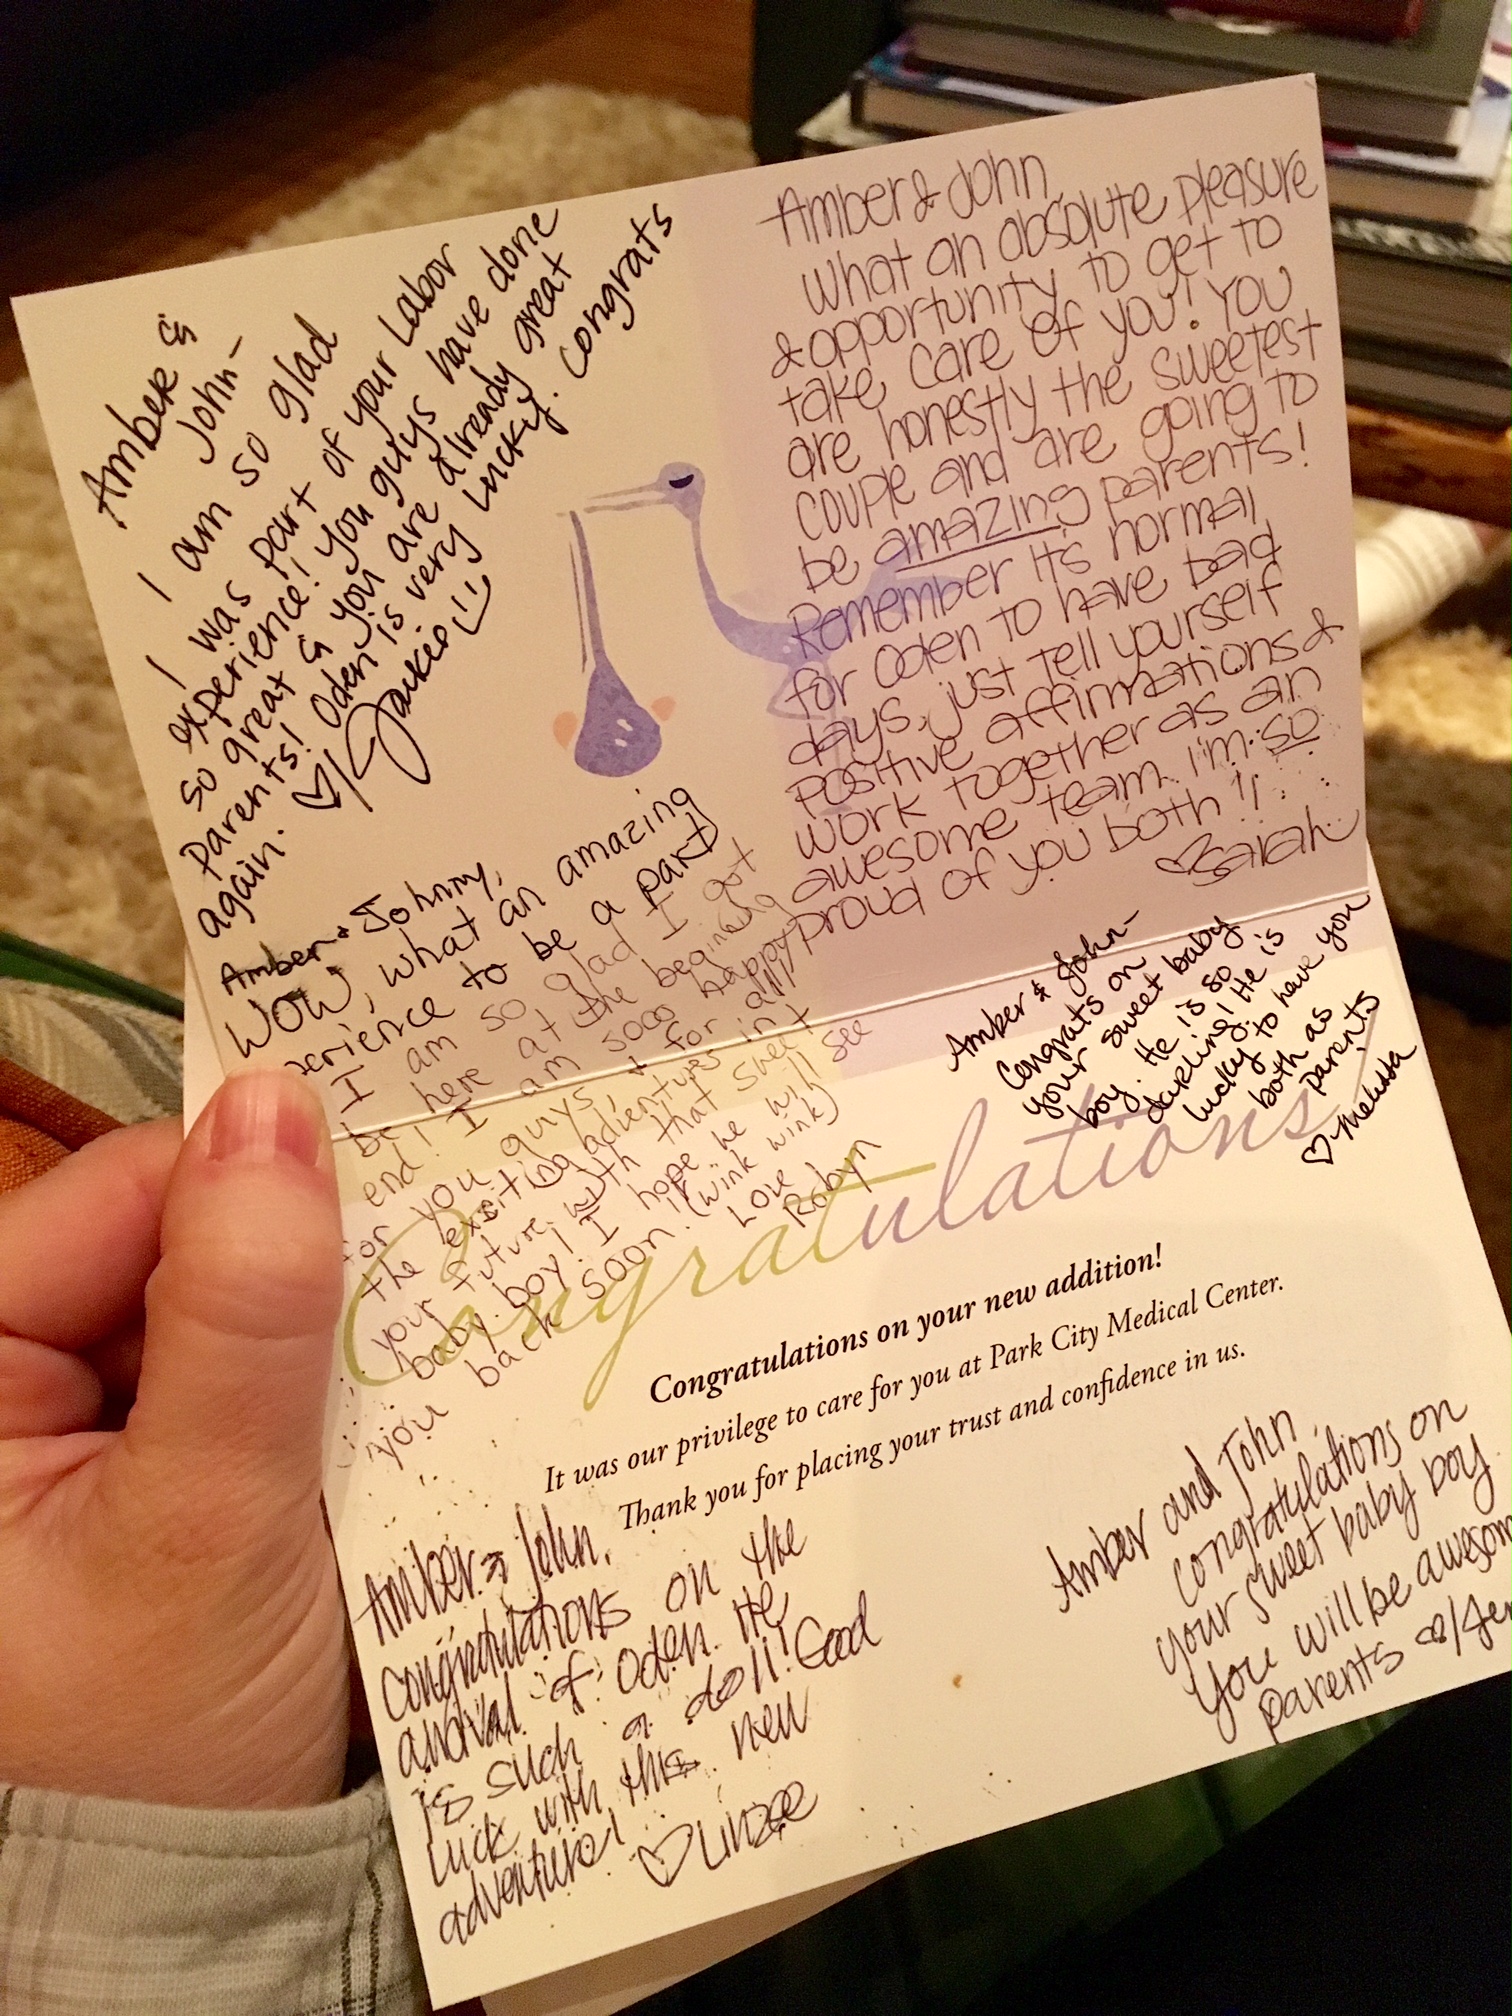 Amber &
John-
I am so glad
I was part of your Labor
experience! You guys have done
so great & you are already great
Parents! Oden is very Lucky. Congrats
again. ♡ Jackie
Amber & John
What an absolute pleasure
& opportunity to get to
take care of you! You
are honestly the sweetest
couple and are going to
be amazing parents!
Remember its normal
for Oden to have bad
days, just tell yourself
positive affirmations &
work together as an
awesome team. I'm so
proud of you both!!
♡ Sarah
Amber & Johnny,
WOW, what an amazing
perience to be a part
I am so glad I got
be here at the beginning
end! I am sooo happy
for you guys, & for all
the exciting adventures in
your future with that sweet
baby boy! I hope he will see
you back soon! (wink wink)
Love
Robyn
Amber & John-
Congrats on
your sweet baby
boy. He is so
darling! He is
lucky to have you
both as
parents
♡-Melissa
Congratulations
Congratulations on your new addition!
It was our privilege to care for you at Park City Medical Center.
Thank you for placing your trust and confidence in us.
Amber & John,
congratulations on the
arrival of Oden. He
is such a doll! Good
luck with this new
adventure!
♡ Linzee
Amber and John
congratulations on
your sweet baby boy.
You will be awesom
parents